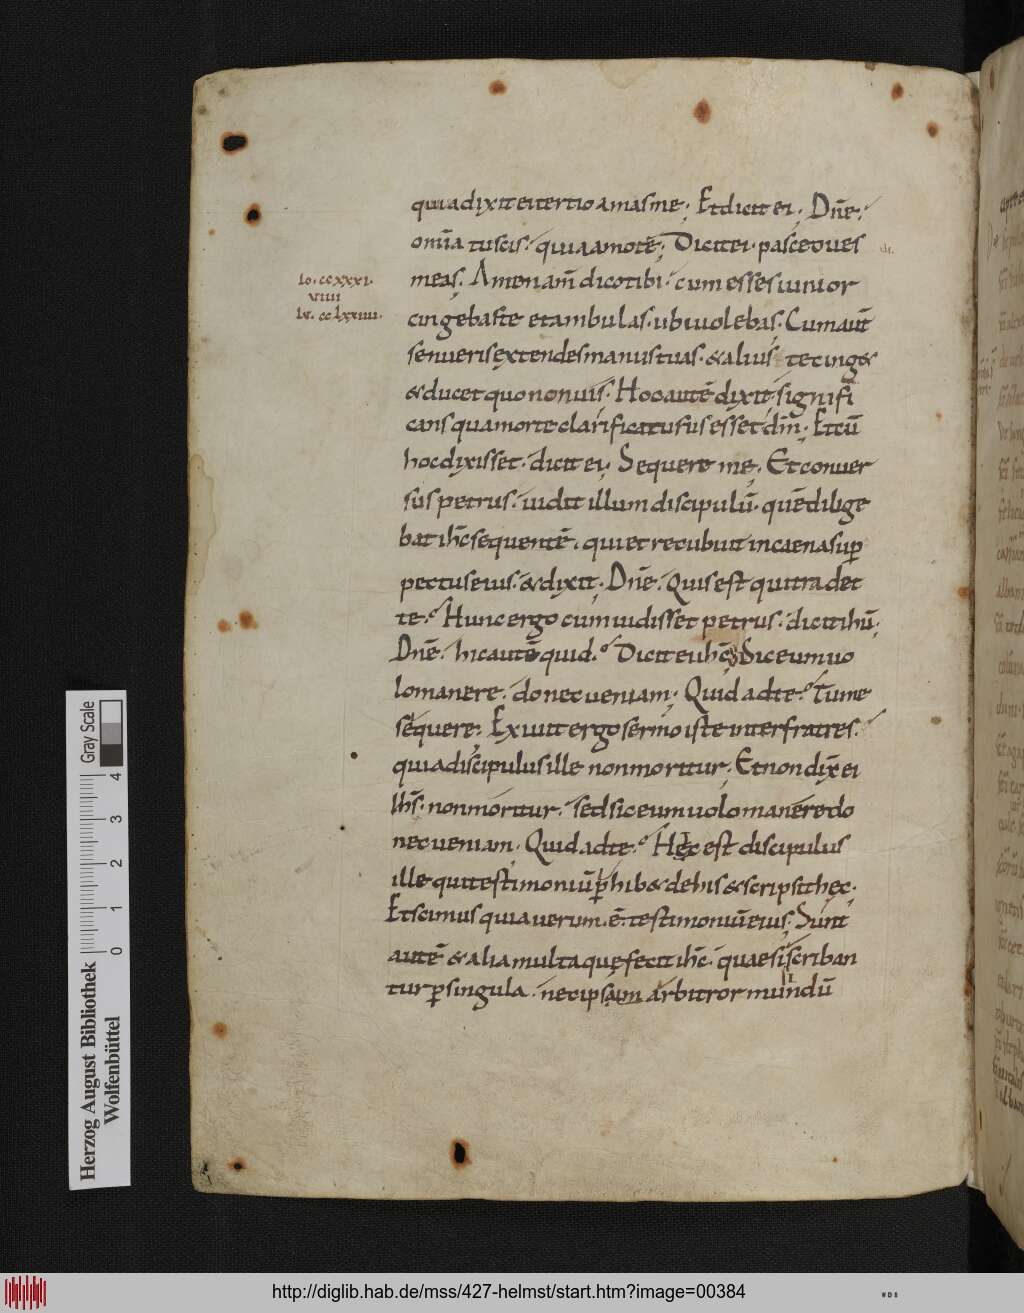 quia dixit ei tertio amas me; Et dicit ei; Dnē;
omīa tu scis. quia amo tē; Dicit ei. pasce oues
meas. Amen am̄ dico tibi. cum esses iunior
cingebas te et ambulas. ubi uolebas. Cum aut̄
senueris extendes manus tuas. & alius te cing&
& ducet quo non uis. Hoc autē dixit signifi
cans qua morte clarificaturus esset dm̄; Et cū
hoc dixisset. dicit ei; Sequere me; Et conuer
sus petrus. uidit illum discipulū. quē dilige
bat ihc̄ sequentē. qui et recubuit in caena sup̄
pectus eius. & dixit; Dnē. Quis est qui tradet
te. Hunc ergo cum uidisset petrus. dicit ihū;
Dnē. hic autē quid. Dicit ei ihc̄; Sic eum uo
lo manere. donec ueniam; Quid ad te. Tu me
sequere; Exiuit ergo sermo iste inter fratres.
quia discipulus ille non moritur; Et non dix ei
Ihs̄. non moritur. sed sic eum uolo manere do
nec ueniam. Quid ad te. Hec est discipulus
ille qui testimoniū phib& de his & scripsit hęc.
Et scimus quia uerum. ē. testimoniū eius; Sunt
autē & alia multa quę fecit ihc̄. quae si scriban
tur p singula. nec ipsum arbitror mundū
Io. ccxxxi.
viiii
Lv. cclxxiiii.
Herzog August Bibliothek
Wolfenbüttel
Gray Scale
0 1 2 3 4
http://diglib.hab.de/mss/427-helmst/start.htm?image=00384